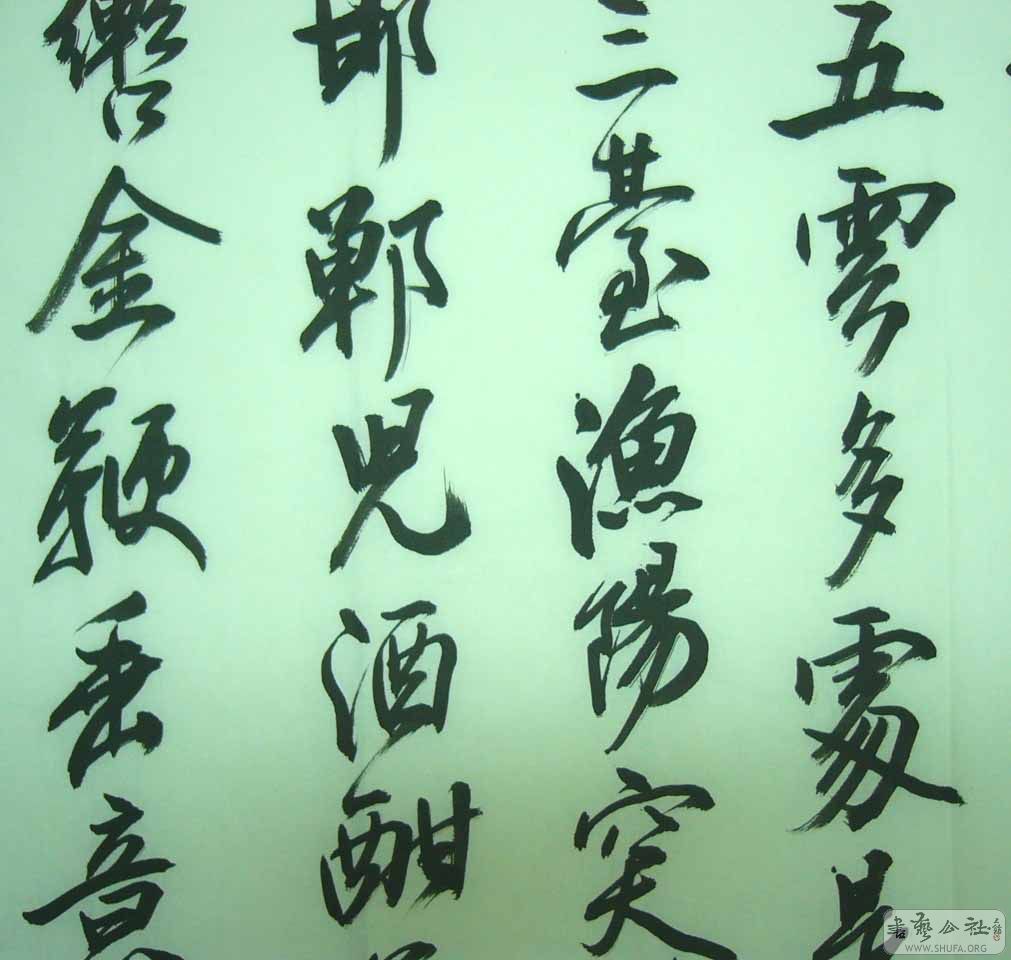 五雲多處是
三臺漁陽突
邯鄲兒酒酣
轡金鞭垂意
書藝公社
WWW.SHUFA.ORG